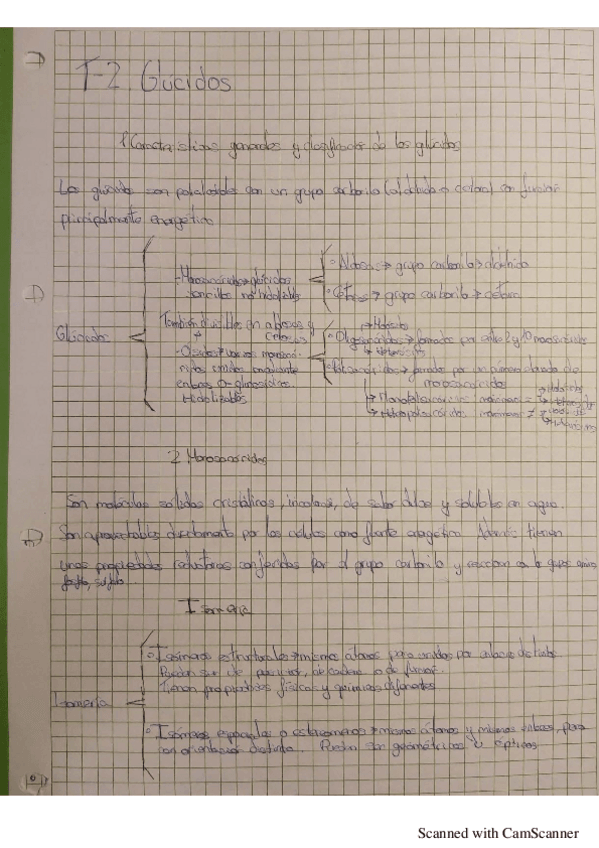 T-2. Glúcidos
1. Características generales y clasificación de los glúcidos
Los glúcidos son con un grupo carbonilo (aldehído o cetona) con función
principalmente energética
- Monosacáridos → glúcidos
sencillos no hidrolizables
También divisibles en aldosas y
cetosas
- Ósidos → varios monosacá-
ridos unidos mediante
enlaces O-glucosídico.
hidrolizables
Glúcidos
◦ Aldosas → grupo carbonilo → aldehído
◦ Cetosas → grupo carbonilo → cetona
◦ Oligosacáridos → formados por entre 2 y 10 monosacáridos
◦ Polisacáridos → formados por un número elevado de
monosacáridos
2. Monosacáridos
Son moléculas sólidas cristalinas, incoloras, de sabor dulce y solubles en agua.
Son aprovechables directamente por las células como fuente energética. Además tienen
unas propiedades reductoras conferidas por el grupo carbonilo y reaccionan con los grupos amino
fosfato, sulfato.
Isomería
Isomería
◦ Isómeros estructurales → mismos átomos pero unidos por enlaces distintos
Pueden ser de posición, de cadena o de función
Tienen propiedades físicas y químicas diferentes
◦ Isómeros espaciales o estereoisómeros → mismos átomos y mismos enlaces, pero
con orientación distinta. Pueden ser geométricos u ópticos
Scanned with CamScanner